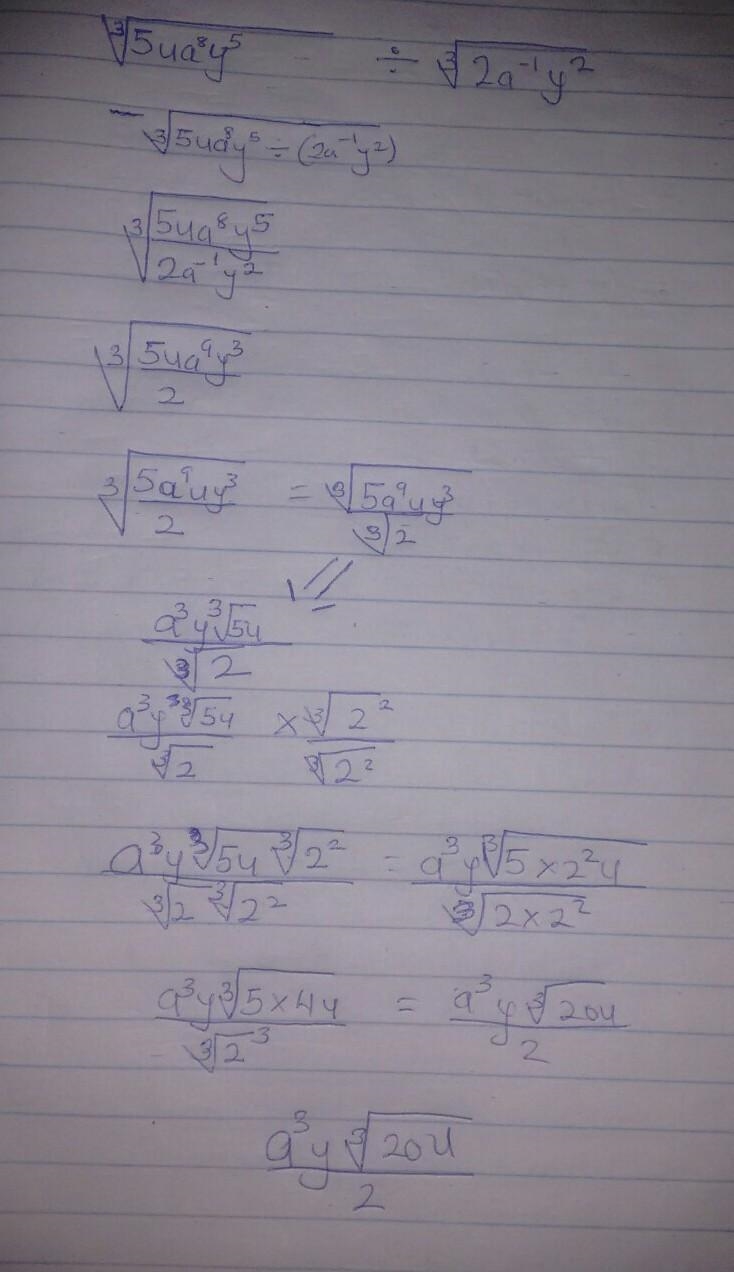 ∛(5ua⁸y⁵) ÷ ∛(2a⁻¹y²)
- ∛(5ua⁸y⁵ ÷ (2a⁻¹y²))
∛(5ua⁸y⁵ / 2a⁻¹y²)
∛(5ua⁹y³ / 2)
∛(5a⁹uy³ / 2) = ∛(5a⁹uy³) / ∛2
a³y∛(5u) / ∛2
a³y∛(5u) / ∛2 × ∛(2²) / ∛(2²)
a³y∛(5u) ∛(2²) / ∛2 ∛(2²) = a³y∛(5×2²u) / ∛(2×2²)
a³y∛(5×4u) / ∛2³ = a³y∛(20u) / 2
a³y∛(20u) / 2